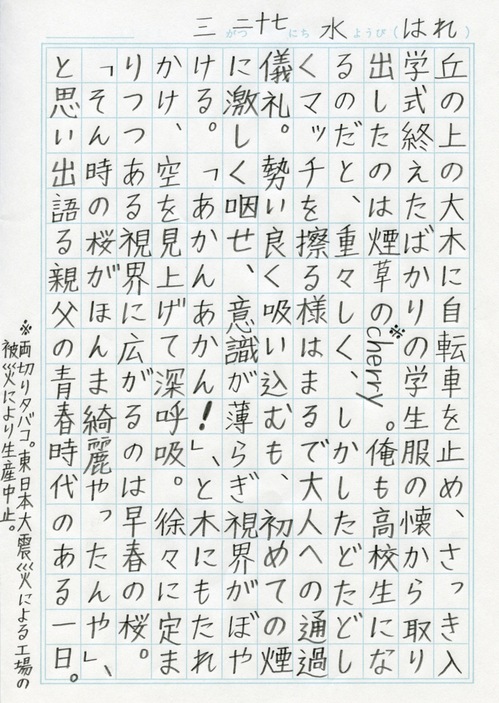 三がつ二十七にち水ようび(はれ)
丘の上の大木に自転車を止め、さっき入
学式終えたばかりの学生服の懐から取り
出したのは煙草の※cherry。俺も高校生にな
るのだと、重々しく、しかしたどたどし
くマッチを擦る様はまるで大人への通過
儀礼。勢い良く吸い込むも、初めての煙
に激しく咽せ、意識が薄らぎ視界がぼや
ける。「あかんあかん!」、と木にもたれ
かけ、空を見上げて深呼吸。徐々に定ま
りつつある視界に広がるのは早春の桜。
「そん時の桜がほんま綺麗やったんや」、
と思い出語る親父の青春時代のある一日。
※両切りタバコ。東日本大震災による工場の
被災により生産中止。